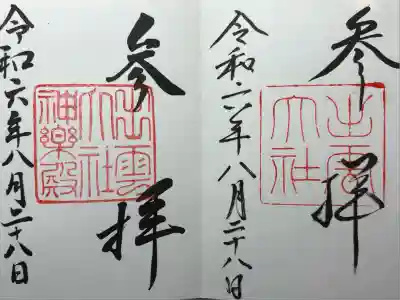 参拝
出雲大社
令和六年八月二十八日
参拝
出雲大社神楽殿
令和六年八月二十八日